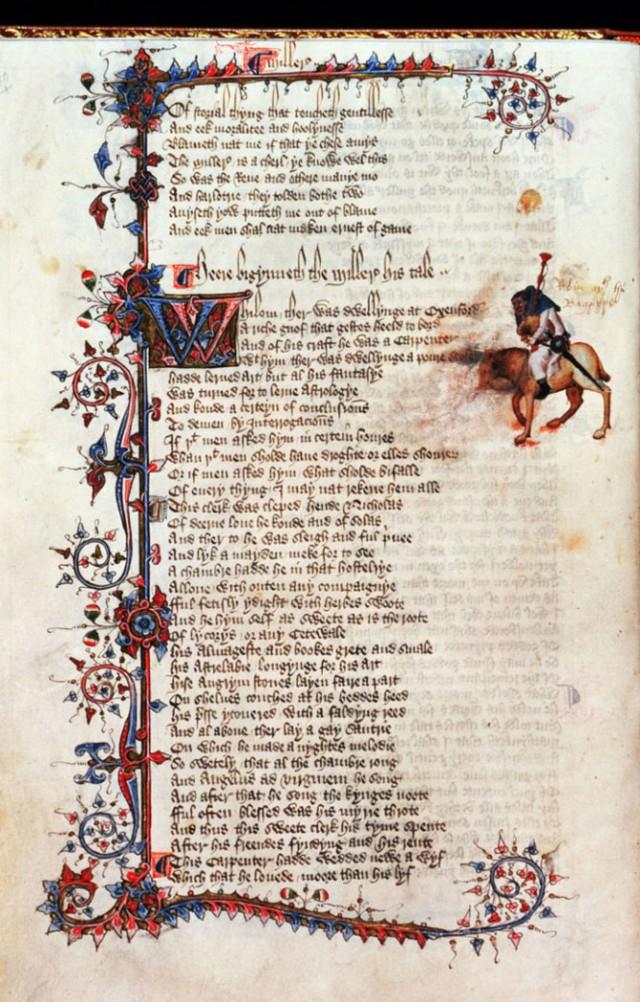 Miller
Of storial thyng that toucheth gentillesse
And eek moralitee and hoolynesse
Blameth nat me if that ye chese amys
The Miller is a cherl ye knowe wel this
So was the Reue and othere manye mo
And harlotrie they tolden bothe two
Auyseth yow putteth me out of blame
And eek men shal nat maken ernest of game
Heere bigynneth the Miller his tale
Whilom ther was dwellynge at Oxenford
A riche gnof that gestes heeld to bord
And of his craft he was a Carpenter
With hym ther was dwellynge a poure scoler
hadde lerned art but al his fantasye
Was turned for to lerne Astrologye
And koude a certeyn of conclusions
To demen by Interrogacions
If þt men asked hym in certein houres
Whan þt men sholde haue droghte or elles shoures
Or if men asked hym what sholde bifalle
Of euery thyng I may nat rekene hem alle
This clerk was cleped hende Nicholas
Of deerne loue he koude and of solas
And ther to he was sleigh and ful priuee
And lyk a mayden meke for to see
A chambre hadde he in that hostelrye
Allone with outen any compaignye
fful fetisly ydight with herbes swoote
And he hym self as sweete as is the roote
Of lycorys or any Cetewale
his Almageste and bookes grete and smale
his Astrelabie longynge for his art
hise Augrym stones layen faire a part
On shelues couched at his beddes heed
his presse ycouered with a faldyng reed
And al aboue ther lay a gay Sautrie
On which he made a nyghtes melodie
So swetely that al the chambre rong
And Angelus ad virginem he song
And after that he song the kynges noote
fful often blessed was his myrie throte
And thus this sweete clerk his tyme spente
After his freendes fyndyng and his rente
This Carpenter hadde wedded newe a wyf
Which that he louede moore than his lyf